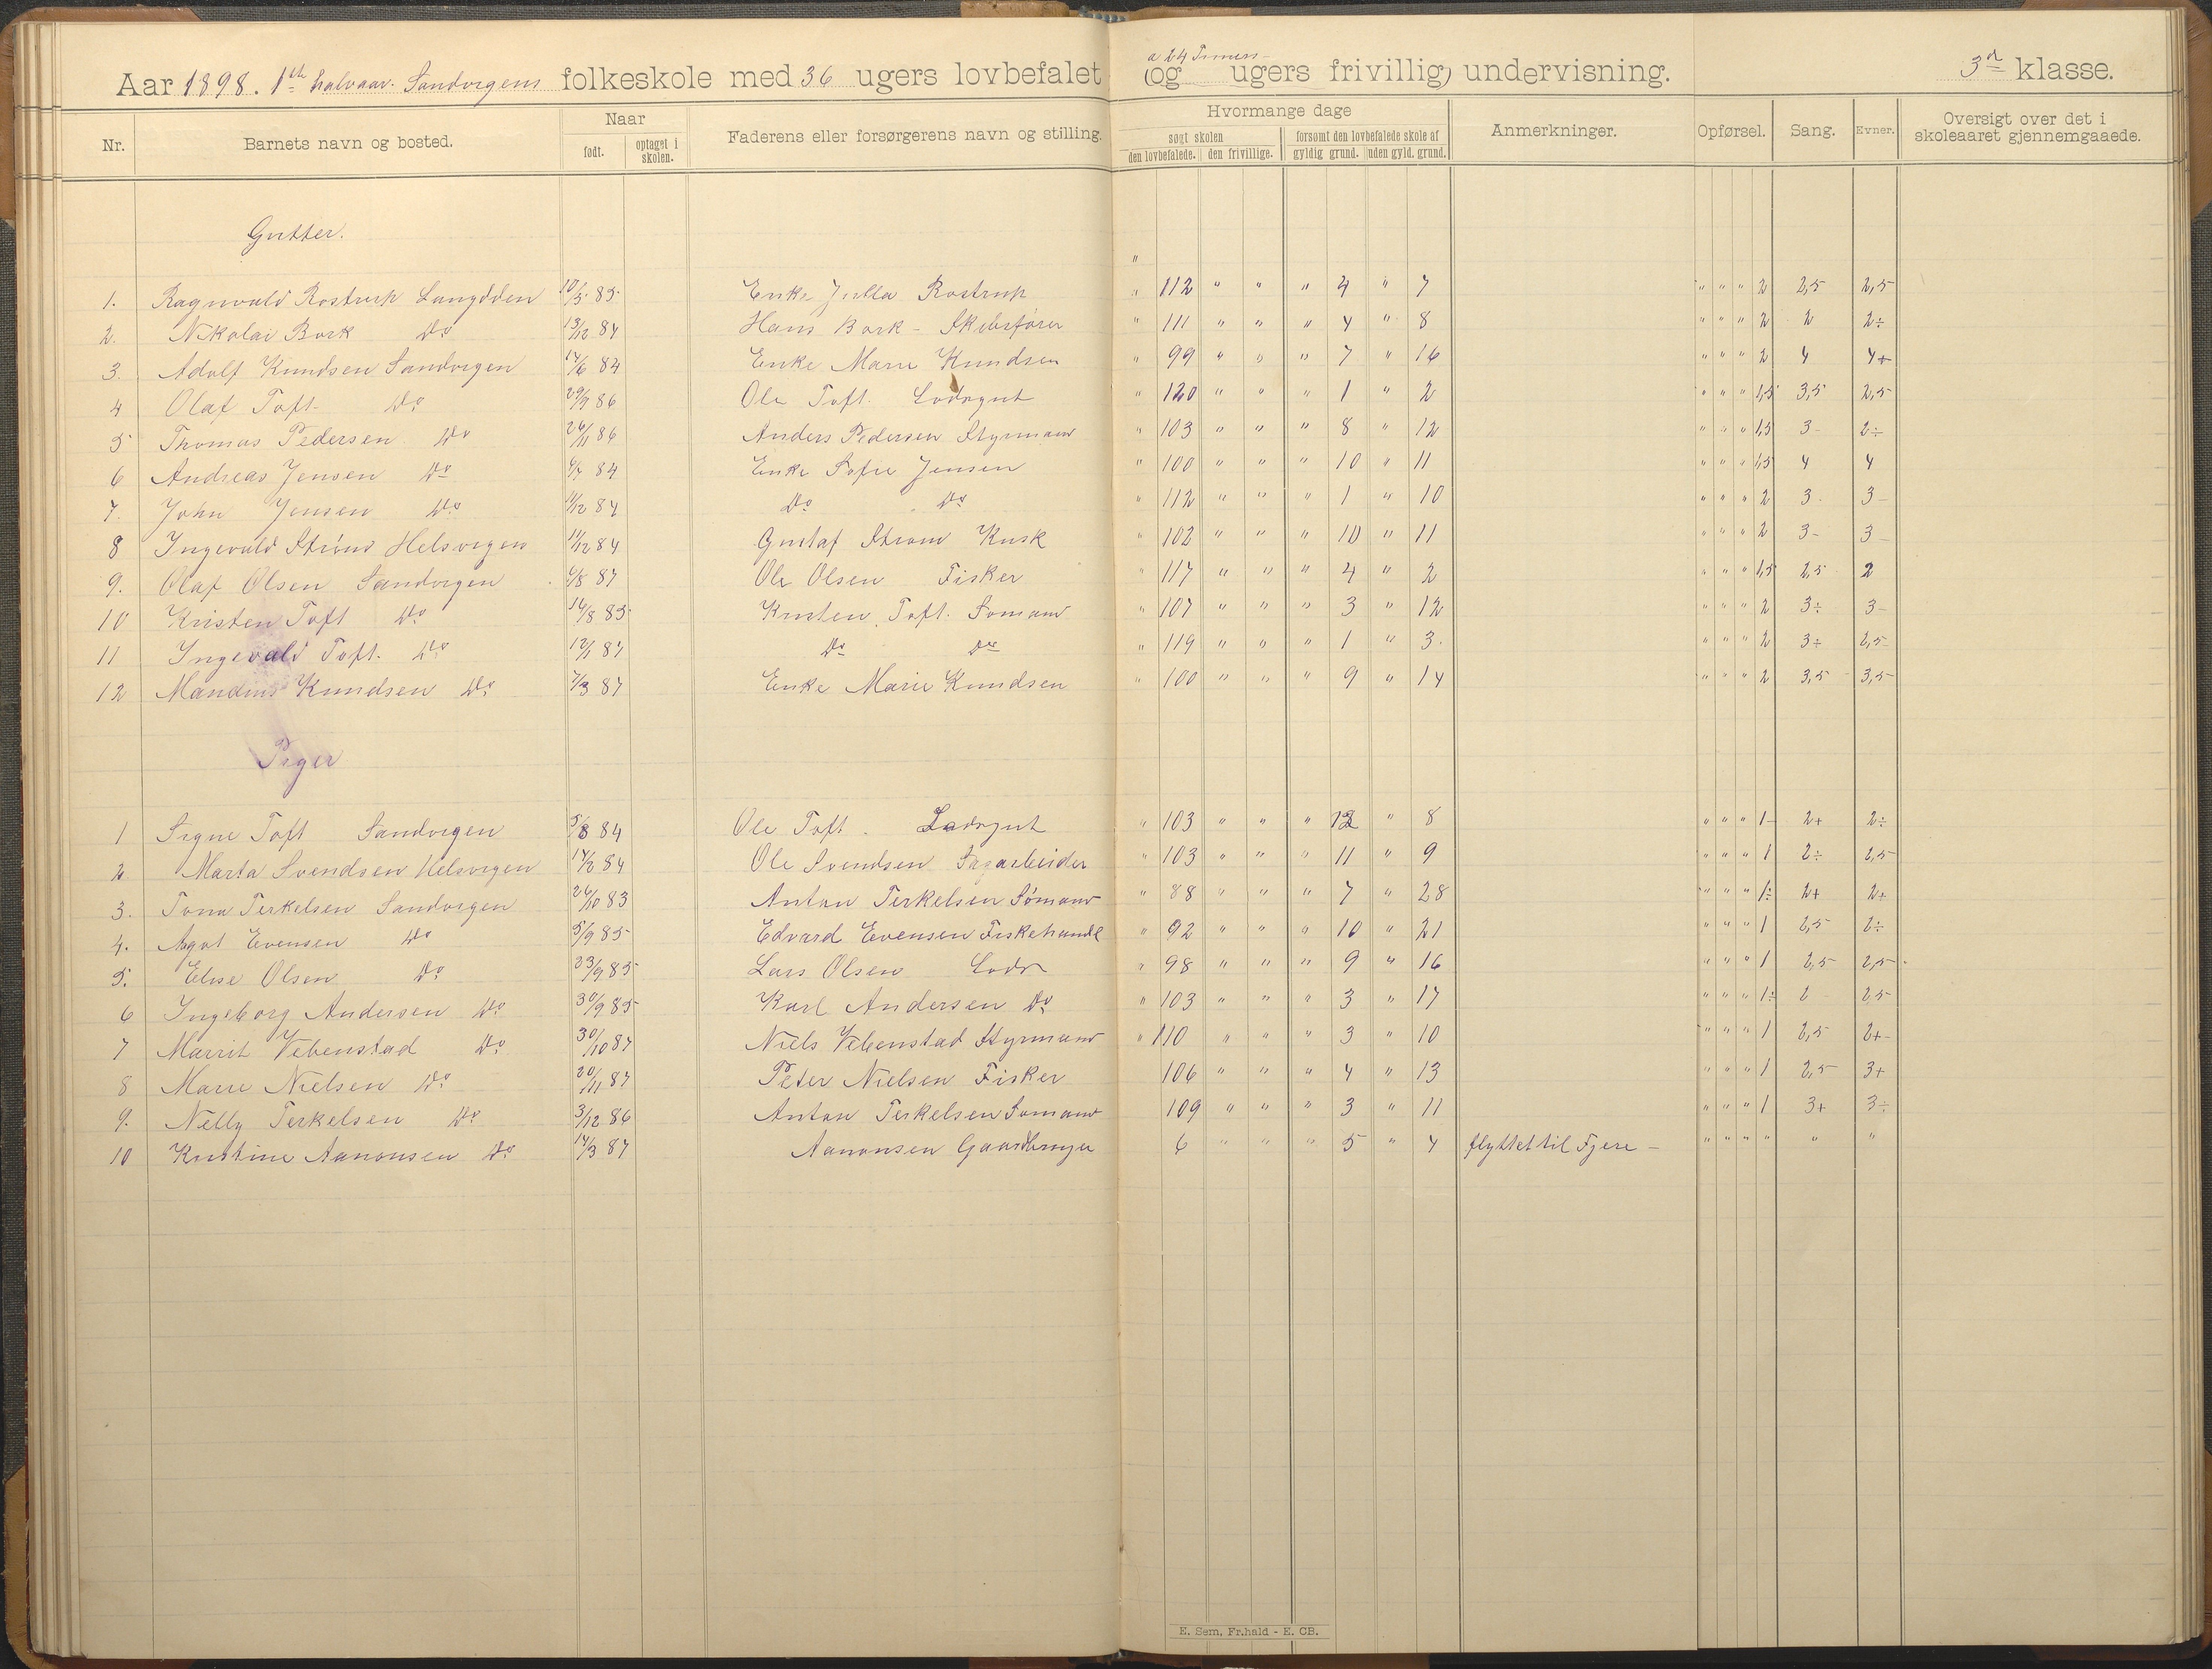 Aar 1898. 1ste halvaar. Sandvigens folkeskole med 36 ugers lovbefalet (og ugers frivillig) undervisning. 3die klasse.
a 24 Timers
Nr. Barnets navn og bosted. Naar født. optaget i skolen. Faderens eller forsørgerens navn og stilling. Hvormange dage søgt skolen den lovbefalede. den frivillige. forsømt den lovbefalede skole af gyldig grund. uden gyld. grund. Anmerkninger. Opførsel. Sang. Evner. Oversigt over det i skoleaaret gjennemgaaede.
Gutter.
"
1. Ragnvald Rostrup Langodden 10/5 85 Enke Julla Rostrup " 112 " " " 4 " 7 " " " 2 2,5 2,5
2. Nikolai Bork Do 13/12 84 Hans Bork - Skibsfører " 111 " " " 4 " 8 " " " 2 2 2÷
3. Adolf Knudsen Sandvigen 14/6 84 Enke Marie Knudsen " 99 " " " 7 " 16 " " " 2 4 4+
4 Olaf Toft. Do 29/9 86 Ole Toft. Lodsgut " 120 " " " 1 " 2 " " " 1,5 3,5 2,5
5 Thomas Pedersen Do 26/11 86 Anders Pedersen Styrmand " 103 " " " 8 " 12 " " " 1,5 3- 2÷
6 Andreas Jensen Do 84 Enke Sofie Jensen " 100 " " " 10 " 11 " " " 1,5 4 4
7. John Jensen Do 11/12 84 Do Do " 112 " " " 1 " 10 " " " 2 3- 3-
8 Ingevald Strøm Helsvigen 11/12 84 Gustaf Strøm Kusk " 102 " " " 10 " 11 " " " 2 3- 3-
9. Olaf Olsen Sandvigen 6/8 87 Ole Olsen Fisker " 117 " " " 4 " 2 " " " 1,5 2,5 2
10 Kristen Toft Do 16/8 85 Kristen Toft. Sømand " 107 " " " 3 " 12 " " " 2 3÷ 3-
11 Ingevald Toft. Do 12/1 87 Do Do " 119 " " " 1 " 3. " " " 2 3÷ 2,5
12 Mandius Knudsen Do 7/3 87 Enke Marie Knudsen " 100 " " " 9 " 14 " " " 2 3,5 3,5
Piger
1 Signe Toft Sandvigen 5/8 84 Ole Toft. Lodsgut " 103 " " " 12 " 8 " " " 1- 2+ 2÷
2 Marta Svendsen Helsvigen 14/2 84 Ole Svendsen Sagarbeider " 103 " " " 11 " 9 " " " 1 2÷ 2,5
3. Tona Terkelsen Sandvigen 26/10 83 Anton Terkelsen Sømand " 88 " " " 7 " 28 " " " 1÷ 2+ 2+
4. Agot Evensen Do 5/9 85 Edvard Evensen Fiskehandl " 92 " " " 10 " 21 " " " 1 2,5 2÷
5. Elise Olsen Do 23/9 85 Lars Olsen Lods " 98 " " " 9 " 16 " " " 1 2,5 2,5
6 Ingeborg Andersen Do 30/9 85 Karl Andersen Do " 103 " " " 3 " 17 " " " 1÷ 2 2,5
7 Marrit Vebenstad Do 30/10 87 Niels Vebenstad Styrmand " 110 " " " 3 " 10 " " " 1 2,5 2+
8 Marie Nielsen Do 20/11 87 Peter Nielsen Fisker 106 " " " 4 " 13 " " " 1 2,5 3+
9. Nelly Terkelsen Do 3/12 86 Anton Terkelsen Sømand 109 " " " 3 " 11 " " " 1 3+ 3÷
10 Kristine Aanonsen Do 14/3 87 Aanonsen Gaardbruger 6 " " " 5 " 4 flyttet til Fjere - " " " " " "
E. Sem, Fr.hald - E. CB.